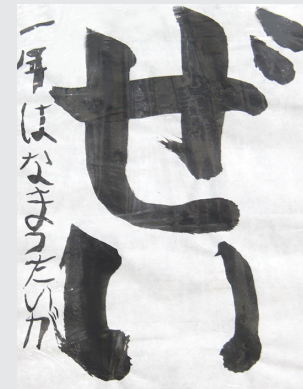 ぜい
一年はなまつたいが